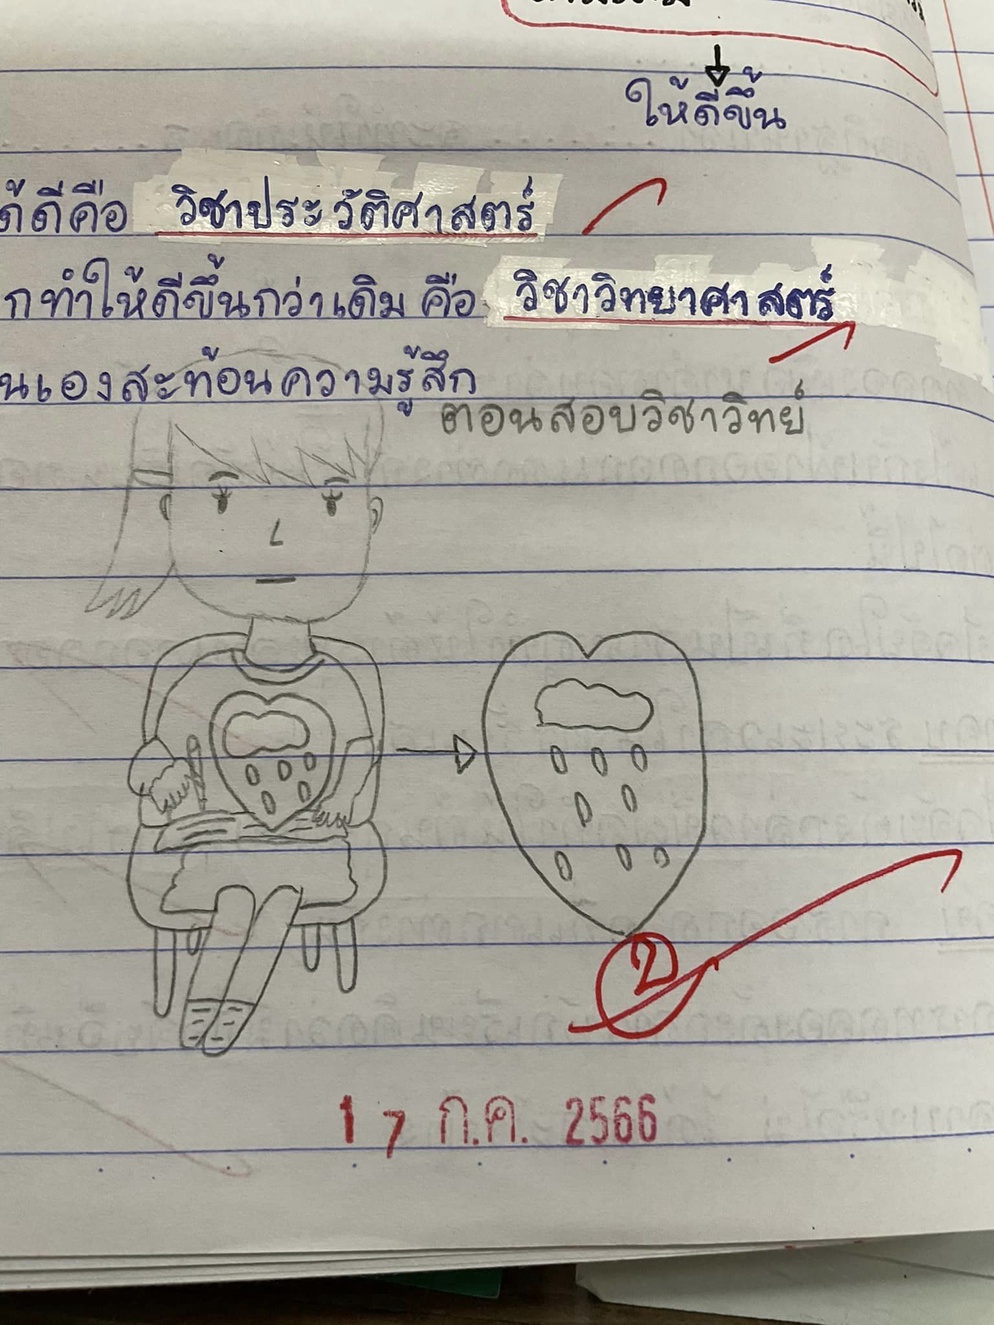 ให้ดีขึ้น
ดีคือ วิชาประวัติศาสตร์
ทำให้ดีขึ้นกว่าเดิม คือ วิชาวิทยาศาสตร์
นเองสะท้อนความรู้สึก
ตอนสอบวิชาวิทย์
17 ก.ค. 2566